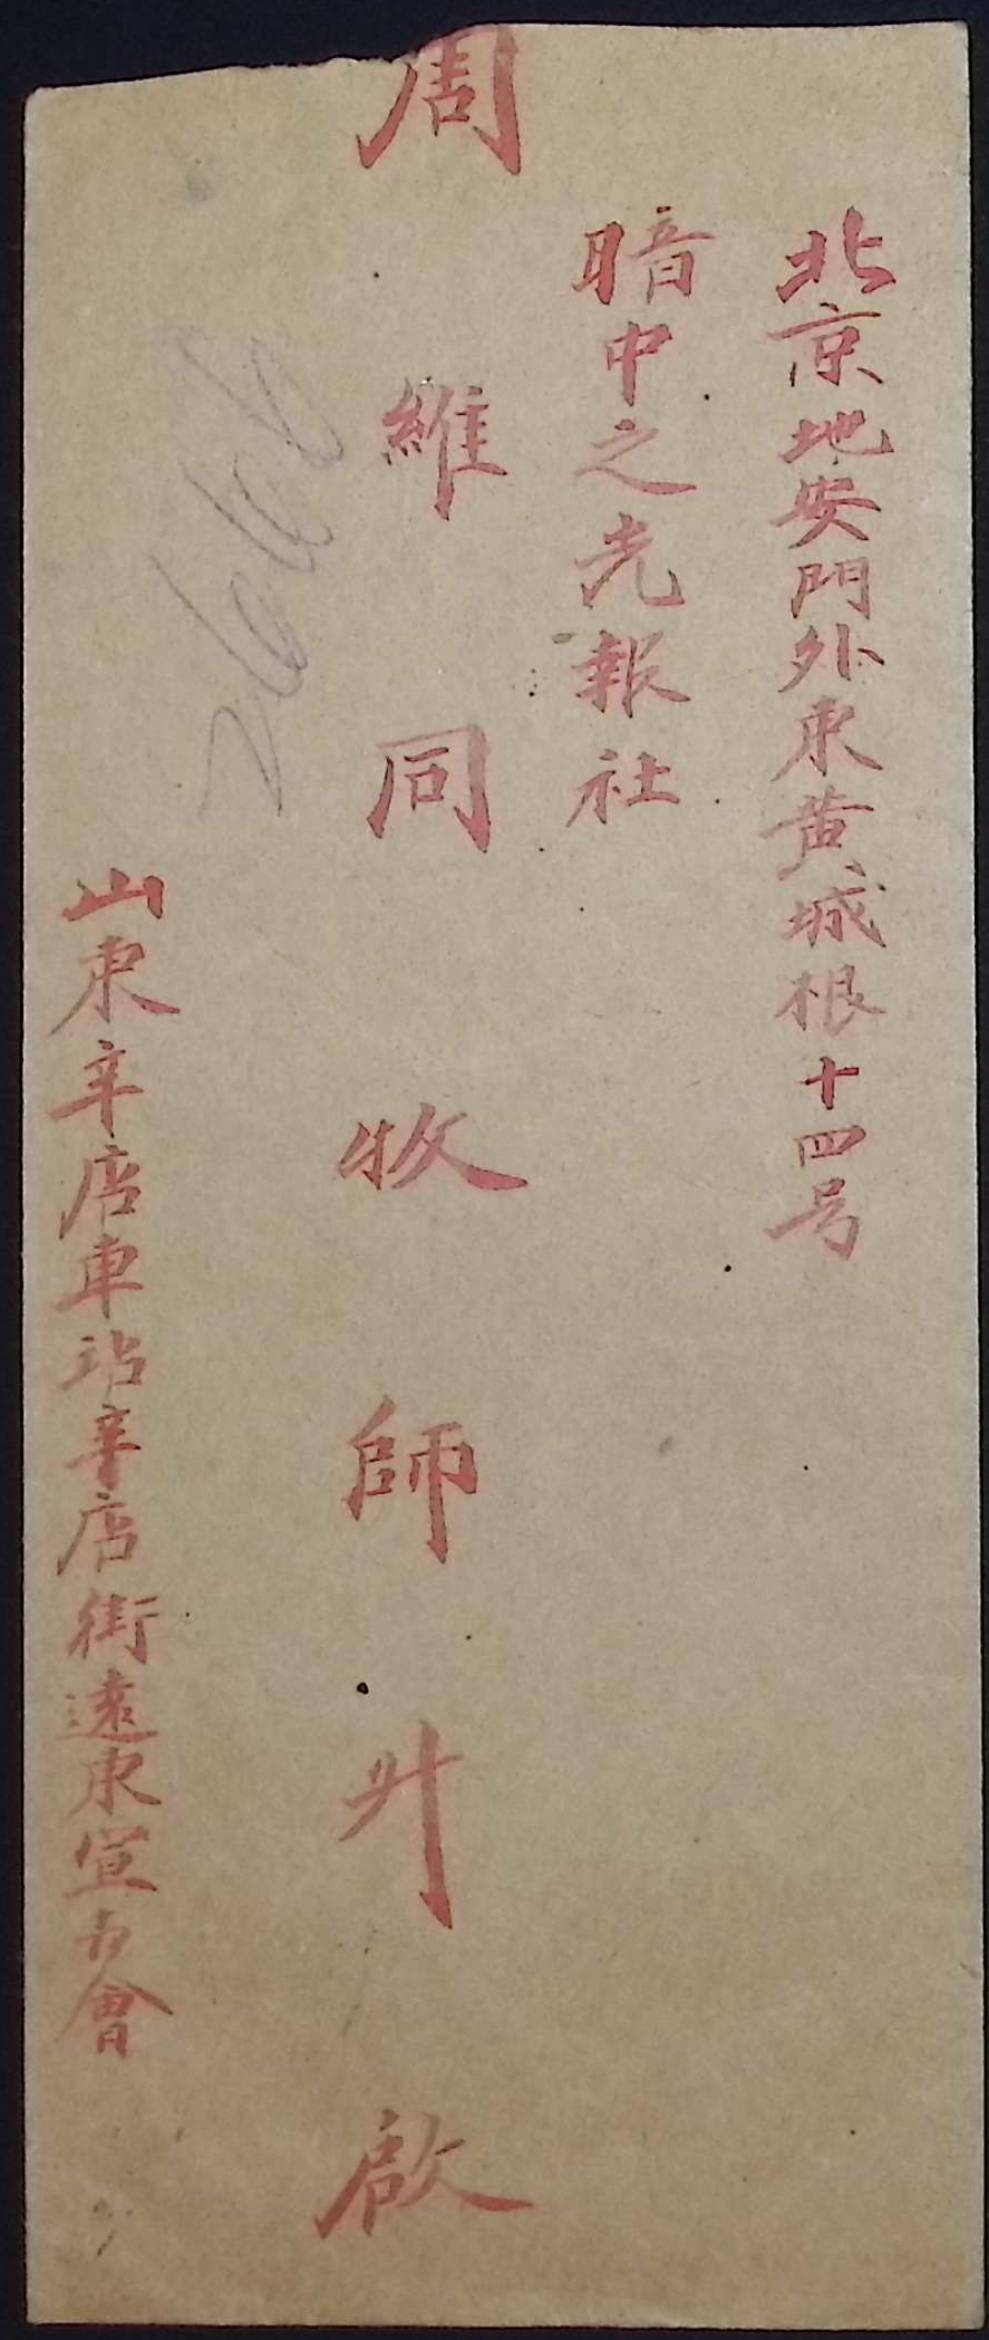 北京地安門外東黄城根十四号
暗中之光報社
周維同牧師升啟
山東辛店車站辛店街遠東宣教會